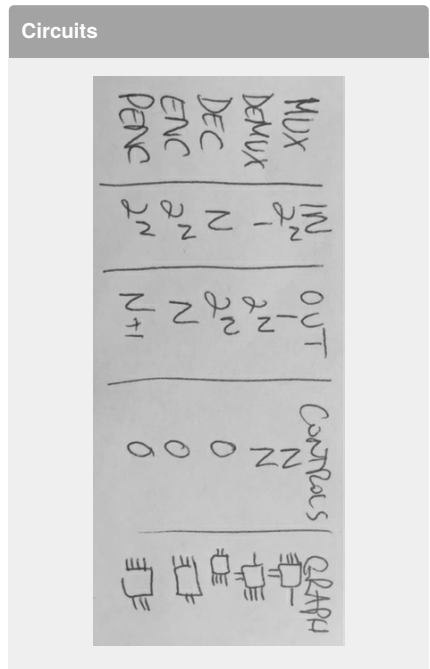 Circuits
IN OUT CONTROLS GRAPH
MUX 2^N 1 N
DEMUX 1 2^N N
DEC N 2^N 0
ENC 2^N N 0
PENC 2^N N+1 0